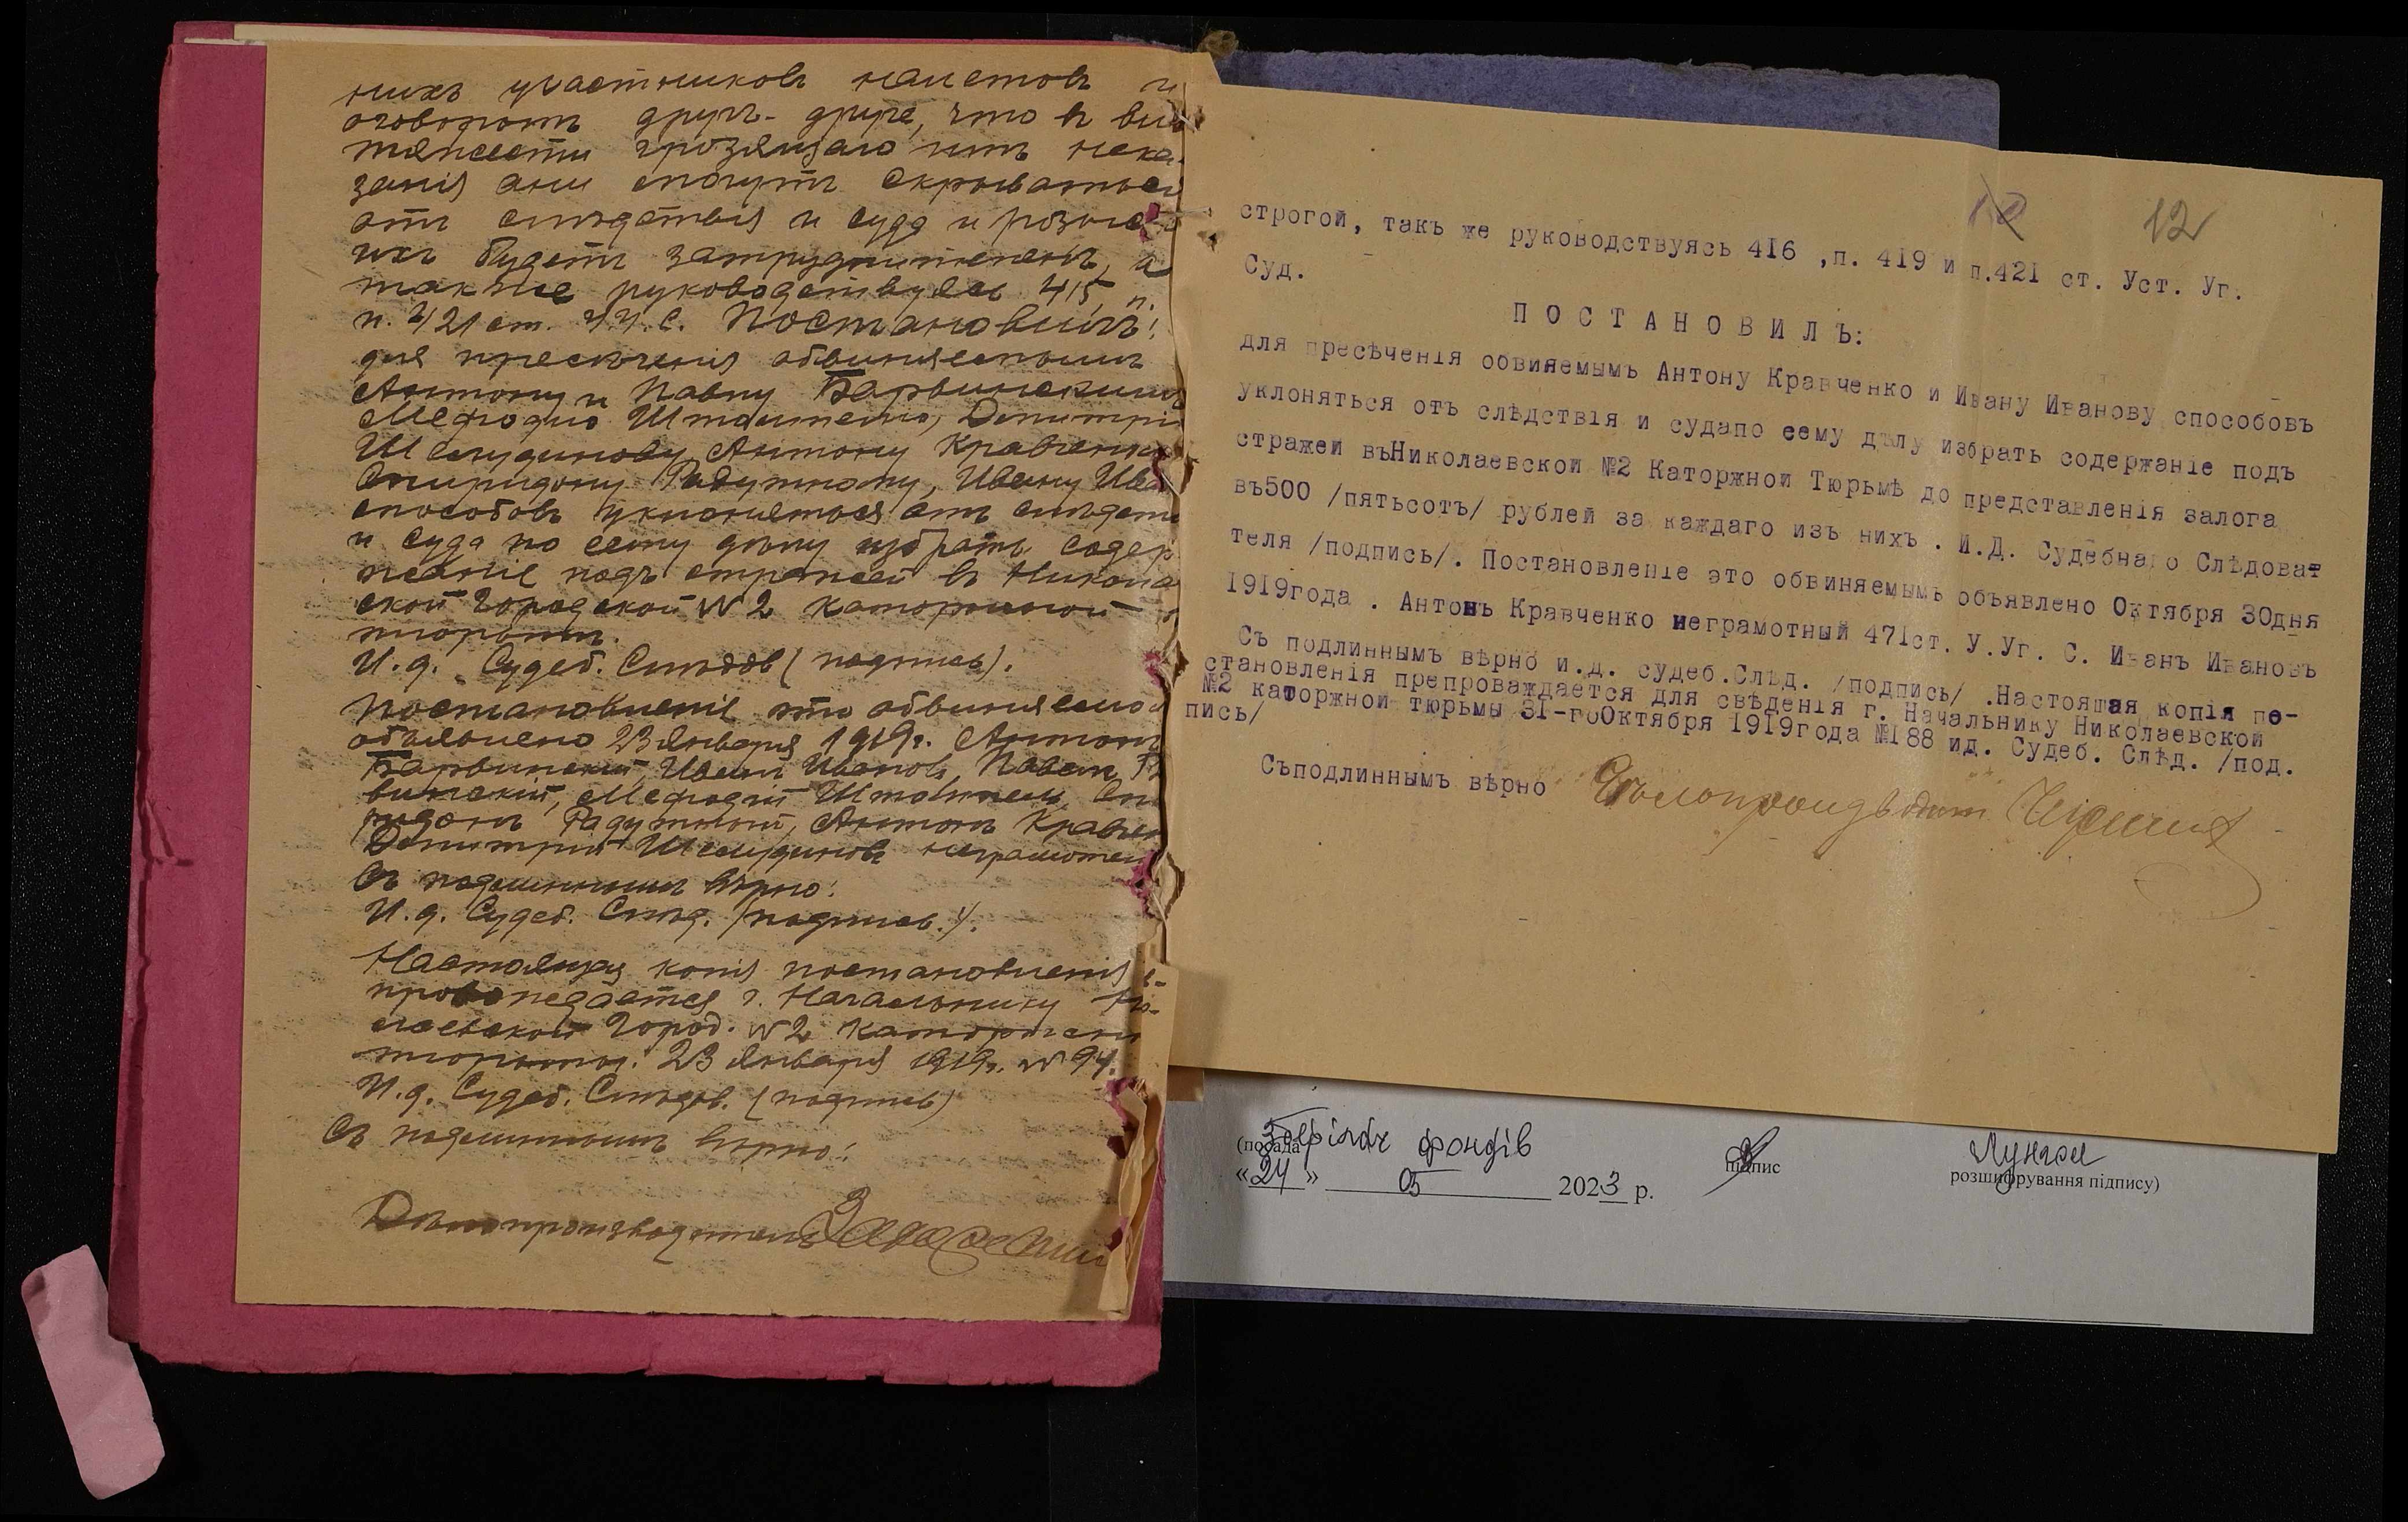 нихъ участниковъ налетовъ и
оговоромъ другъ-друга, что въ ви
тяжести грозящаго имъ нака-
занія они могутъ скрываться
отъ слѣдствія и суда и розыск
ихъ будетъ затруднителенъ, а
также руководствуясь 415, п.
п. 421 ст. У.У.С. Постановилъ:
для пресѣченія обвиняемымъ
Антону и Павлу Барвинскимъ
Мефодію Дмитрі
Антону Кравченко
Спиридону Радутному, Ивану Ива
способовъ уклоняться отъ слѣдств
и суда по сему дѣлу избрать содер
жаніе подъ стражей въ Никола
ской Городской №2 Каторжной
тюрьмѣ.
И.д. Судеб. Слѣдов (подпись).
Постановленіе это обвиняемы
объявлено 23 Января 1919г. Антонъ
Барвинскій, Иванъ Ивановъ, Павелъ
винскій, Мефодій Спи
ридонъ Радутный, Антонъ Кравчен
Дмитрій неграмотен
Съ подлиннымъ вѣрно:
И.д. Судеб. Слѣд. /подпись/.
Настоящая копія постановленія
провождается г. Начальнику Ни-
лаевской Город. №2 Каторжной
тюрьмы. 23 Января 1919г. №94.
И.д. Судеб. Слѣдов. (подпись)
Съ подлиннымъ вѣрно:
Дѣлопроизводитель
12
12
строгой, такъ же руководствуясь 416 ,п. 419 и п.421 ст. Уст. Уг.
Суд.
П О С Т А Н О В И Л Ъ:
для пресѣченія обвияемымъ Антону Кравченко и Ивану Иванову способовъ
уклоняться отъ слѣдствія и судапо сему дѣлу избрать содержаніе подъ
стражей въНиколаевской №2 Каторжной Тюрьмѣ до представленія залога
въ500 /пятьсотъ/ рублей за каждаго изъ нихъ . И.Д. Судебнаго Слѣдоват
теля /подпись/. Постановленіе это обвиняемымъ объявлено Октября 30дня
1919года . Антонъ Кравченко неграмотный 471ст. У.Уг. С. Иванъ Ивановъ
Съ подлиннымъ вѣрно и.д. судеб.Слѣд. /подпись/ .Настоящая копія по-
становленія препровождается для свѣденія г. Начальнику Николаевской
№2 каторжной тюрьмы 31-гоОктября 1919года №188 ид. Судеб. Слѣд. /под.
пись/
Съподлиннымъ вѣрно Дѣлопроизводит
(посада Зберігач фондів
підпис
розшифрування підпису)
«24» 05 2023 р.